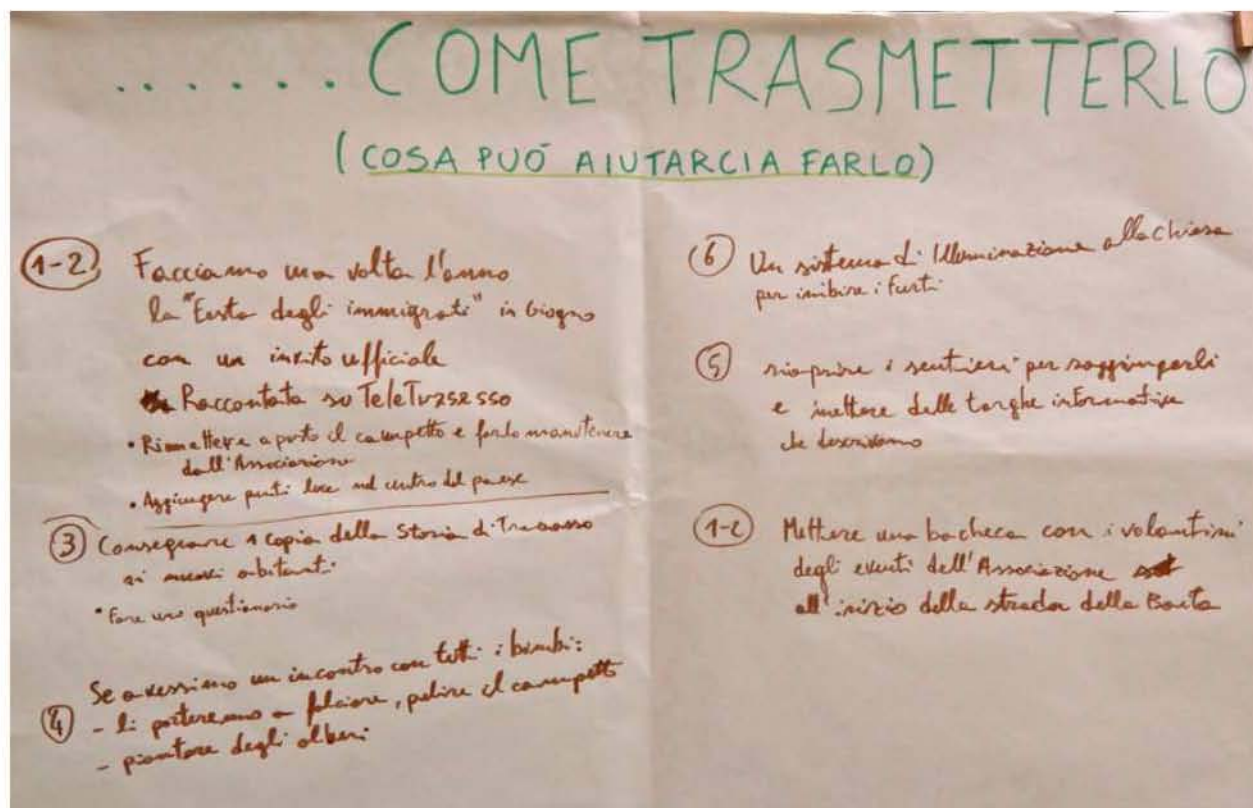 ...... COME TRASMETTERLO
(COSA PUÒ AIUTARCI A FARLO)
1-2 Facciamo una volta l'anno
la "Festa degli immigrati" in Giugno
con un invito ufficiale
Raccontata su TeleTrasesso
• Rimettere a posto il campetto e farlo manutenere
dall'Associazione
• Aggiungere punti luce nel centro del paese
3 Consegnare 1 copia della Storia di
ai nuovi abitanti
• Fare un questionario
4 Se avessimo un incontro con tutti i bimbi:
- li porteremo a falciare, pulire il campetto
- piantare degli alberi
6 Un sistema di Illuminazione alla chiesa
per inibire i furti
5 riaprire i sentieri per raggiungerli
e mettere delle targhe informative
che descrivano
1-2 Mettere una bacheca con i volantini
degli eventi dell'Associazione
all'inizio della strada della